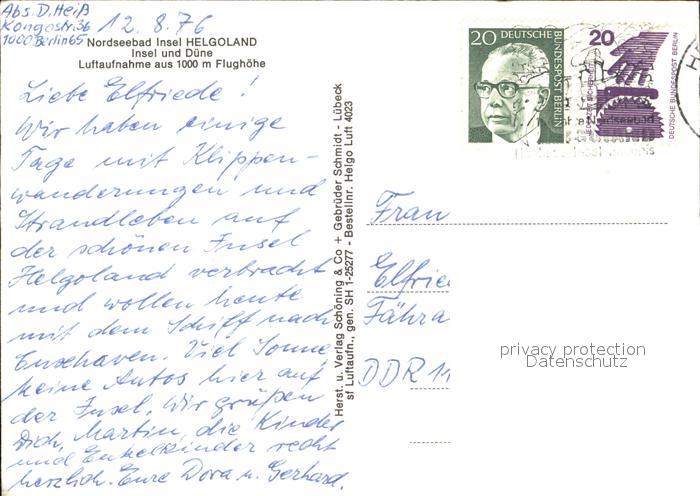 Abs. D. Heiß
Kongostr. 36
1000 Berlin 65
12.8.76
Nordseebad Insel HELGOLAND
Insel und Düne
Luftaufnahme aus 1000 m Flughöhe
Liebe Elfriede!
Wir haben einige
Tage mit Klippen-
wanderungen und
Strandleben auf
der schönen Insel
Helgoland verbracht
und wollen heute
mit dem Schiff nach
Cuxhaven. Viel Sonne
keine Autos hier auf
der Insel. Wir grüßen
Dich, Martin, die Kinder
und Enkelkinder recht
herzlich. Eure Dora u. Gerhard.
Herst. u. Verlag Schöning & Co + Gebrüder Schmidt - Lübeck
sf Luftaufn., gen. SH 1-25277 - Bestellnr. Helgo Luft 4023
20 DEUTSCHE
BUNDESPOST BERLIN
20
DEUTSCHE BUNDESPOST BERLIN
Nordseebad
Frau
Elfrie
Fähra
DDR 11
privacy protection
Datenschutz